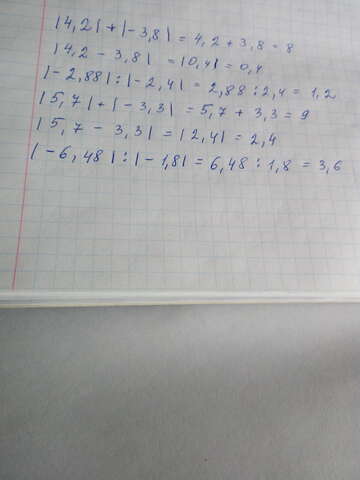 |4,2| + |-3,8| = 4,2 + 3,8 = 8
|4,2 - 3,8| = |0,4| = 0,4
|-2,88| : |-2,4| = 2,88 : 2,4 = 1,2
|5,7| + |-3,3| = 5,7 + 3,3 = 9
|5,7 - 3,3| = |2,4| = 2,4
|-6,48| : |-1,8| = 6,48 : 1,8 = 3,6